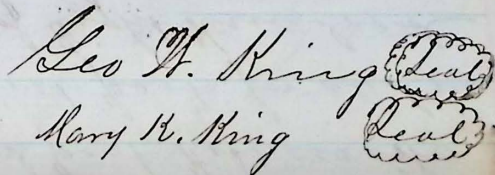 Geo W. King Seal
Mary K. King Seal